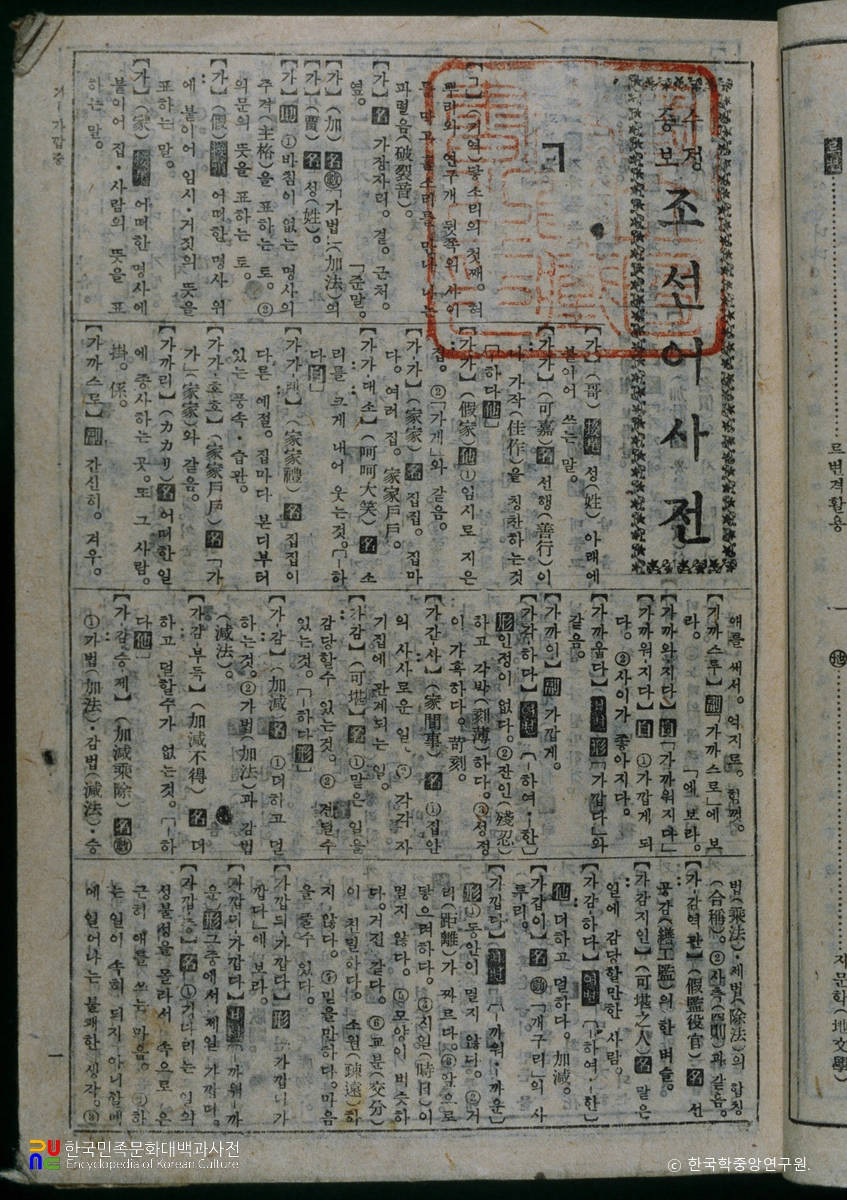 수정
증보
조선어사전
ㄱ
【가】 名 가장자리。 곁。 근처。
옆。
【가】(加) 名 數 「가법」(加法)의
「준말。
【가】(賈) 名 성(姓)。
①바침이 없는 명사의
주격(主格)을 표하는 토。 ②
의문의 뜻을 표하는 토。
【가】(假) 어떠한 명사 위
에 붙이어 임시·거짓의 뜻을
표하는 말。
【가】(家) 어떠한 명사에
붙이어 집·사람의 뜻을 표
하는 말。
【가】(哥) 성(姓) 아래에
붙이어 쓰는 말。
【가가】(可嘉) 名 선행(善行)이
나 가작(佳作)을 칭찬하는 것
「하다他」
【가가】(假家) ①임시로 지은
집。 ②「가게」와 같음。
【가가】(家家) 名 집집。 집마
다。 여러 집。 家家戶戶。
【가가·대소】(呵呵大笑) 名 소
리를 크게 내어 웃는것。「―하
다自」
【가가·례】(家家禮) 名 집집이
다른 예절。 집마다 본디부터
있는 풍속·습관。
【가가·호호】(家家戶戶) 名 「가
가」(家家)와 같음。
【가까리】(カカリ) 名 어떠한 일
에 종사하는 곳。 또 그 사람。
掛。 係。
【가까스로】 副 간신히。 겨우。
애를 써서。 억지로。 힘껏。
【가까스루】 副 「가까스로」에 보
라。
【가까와지다】 自 「가까워지다」
「에 보라。
【가까워·지다】 自 ①가깝게 되
다。 ②사이가 좋아지다。
【가까웁다】 形 「가깝다」와
같음。
【가까이】 副 가깝게。
【가각하다】 「―하여·―한」
形 인정이 없다。 ②잔인(殘忍)
하고 각박(刻薄)하다。 ③성정
이 가혹하다。 苛刻。
【가간사】(家間事) 名 ①집안
의 사사로운 일。 ② 각각 자
기집에 관계되는 일。
【가감】(可堪) 名 ①맡은 일을
감당할수 있는것。 ② 견딜수
있는것。「―하다形」
【가·감】(加減) 名 ①더하고 덜
하는것。 ②가법(加法)과 감법
(減法)。
【가감·부득】(加減不得) 名 더
하고 덜할수가 없는것。「―하
다他」
【가·감·승·제】(加減乘除) 名 數
①가법(加法)·감법(減法)·승
법(乘法)·제법(除法)의 합칭
(合稱)。 ②사측(四則)과 같음。
【가·감역관】(假監役官) 名 선
공감(繕工監)의 한 벼슬。
【가감지인】(可堪之人) 名 맡은
일에 감당할만한 사람。
【가감하다】 「―하여·―한」
他 더하고 덜하다。 加減。
【가갑이】 名 動 「개구리」의 사
투리。
【가깝다】 「―까워·―까운」
形 ①동안이 멀지 않다。 ②거
리(距離)가 짜르다。 ③앞으로
닿으려하다。 ④시일(時日)이
멀지 않다。 ⑤모양이 비슷하
다。 거진 같다。 ⑥교분(交分)
이 친밀하다。 소원(疎遠)하
지 않다。 ⑦믿을만하다。 마음
을 줄수 있다。
【가깝되가깝다】 形 「가깝디가
깝다」에 보라。
【가깝디가깝다】 「―까워·―까
운」 形 그중에서 제일 가깝다。
【가깝·증】 名 ①기다리는 일의
성불성을 몰라서 속으로 은
근히 애를 쓰는 마음。 ②하
는 일이 속히 되지 아니할때
에 일어나는 불쾌한 생각。 ③
ㄱ―가깝증
一
르변격활용
지문학(地文學)
한국민족문화대백과사전
Encyclopedia of Korean Culture
ⓒ 한국학중앙연구원.